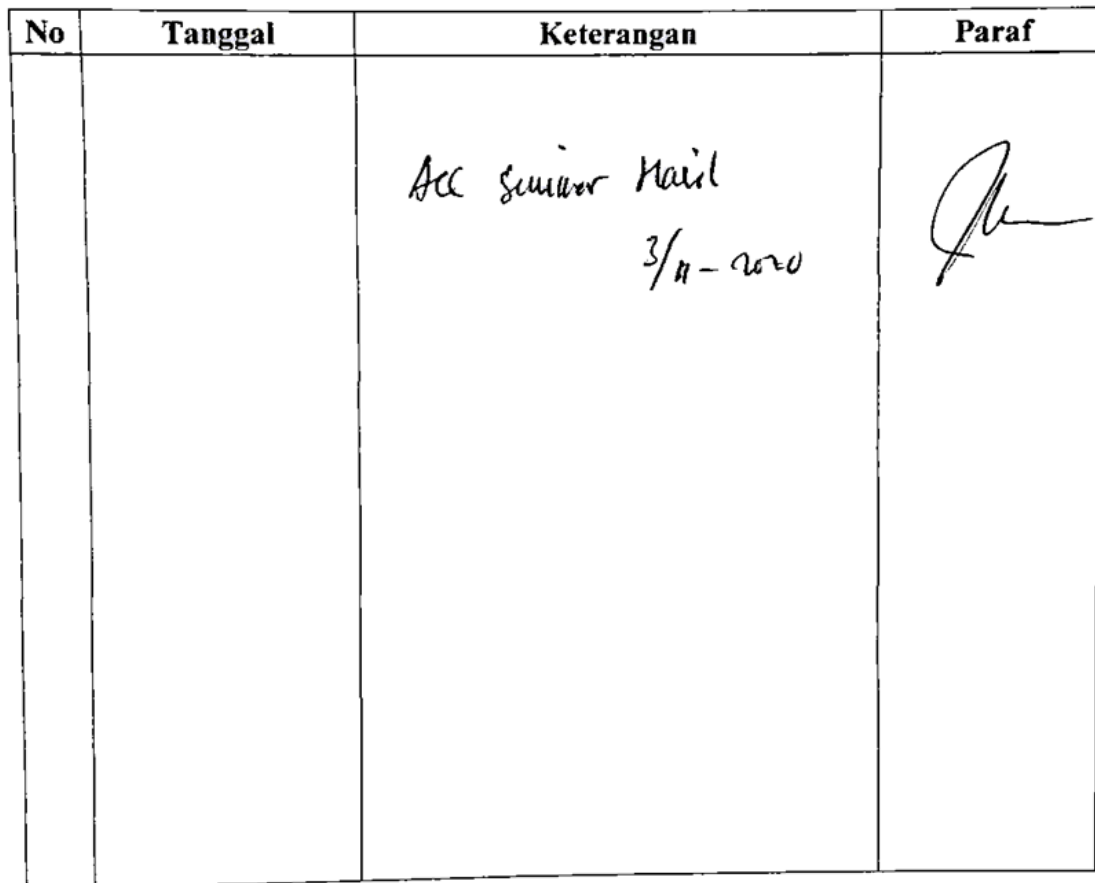 No Tanggal Keterangan Paraf
Acc Seminar Hasil
3/11-2020